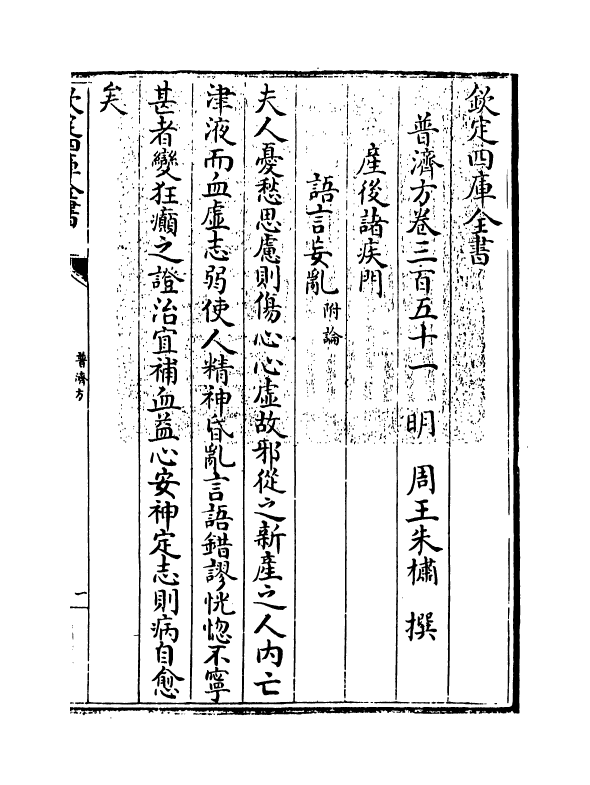 欽定四庫全書
普濟方卷三百五十一　明　周王朱橚　撰
產後諸疾門
語言妄亂附論
夫人憂愁思慮則傷心心虛故邪從之新產之人內亡
津液而血虛志弱使人精神昏亂言語錯謬恍惚不寧
甚者變狂癲之證治宜補血益心安神定志則病自愈
矣
欽定四庫全書
普濟方